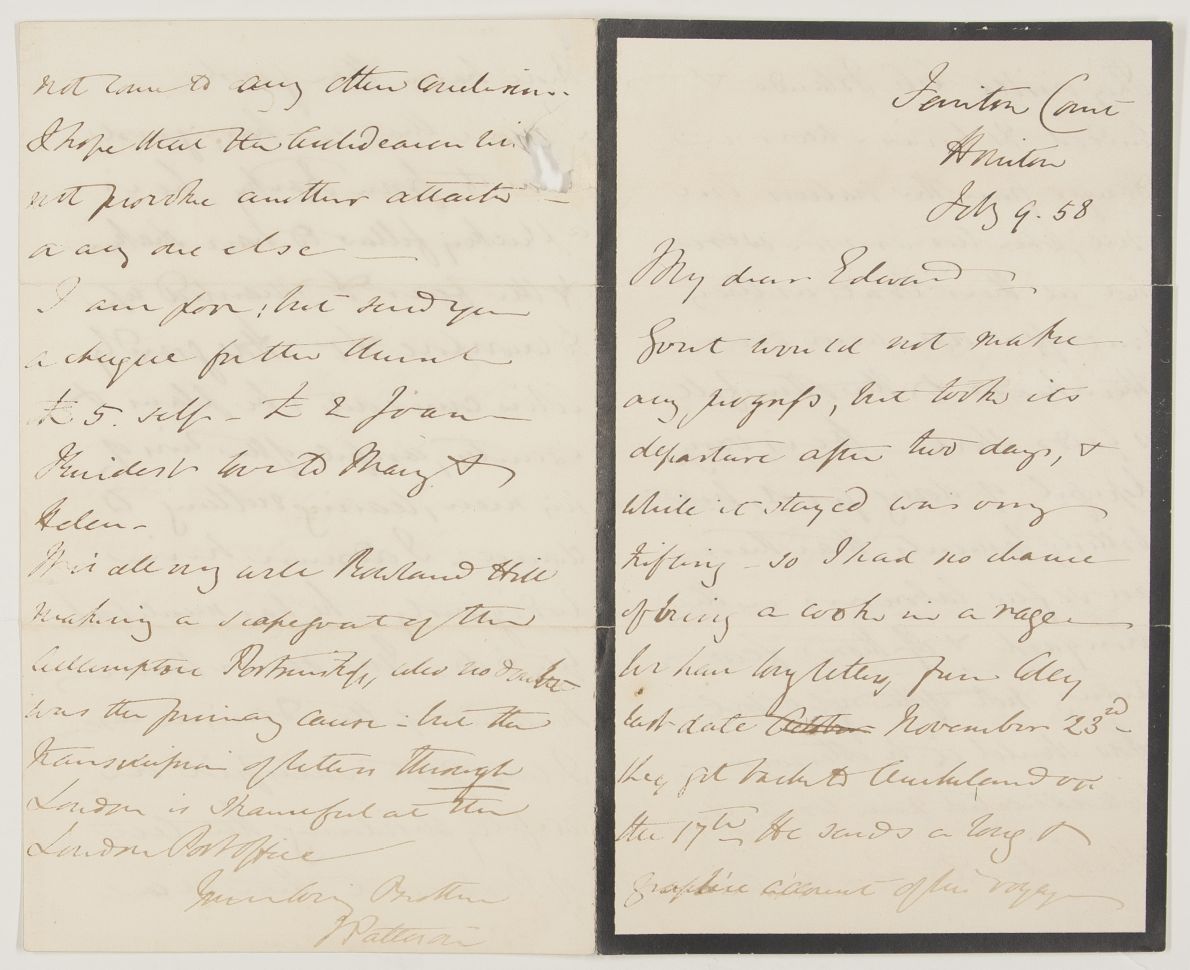 Feniton Court
Honiton
Feby 9. 58
My dear Edward
Gout would not make
any progress, but took its
departure after two days, &
while it stayed was very
trifling - so I had no chance
of being a cook in a rage -
We have long letters, from Coley
last date October November 23rd
they got back to Auckland on
the 17th He sends a long &
graphic account of his voyage
not come to any other conclusion.
I hope that the Archdeacon
not provoke another attack -
or any one else -
I am poor, but send you
a cheque for the
£5. self - £2 Joan -
Kindest love to Mary &
Helen -
Rowland Hill
making a scapegoat of the
Postmistress, who no doubt
was the primary cause - but the
transmission of letters through
London is shameful at the
London Post Office
Your loving Brother
J Patteson